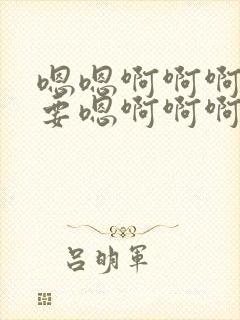 嗯嗯啊啊啊
要嗯啊啊啊
吕明军